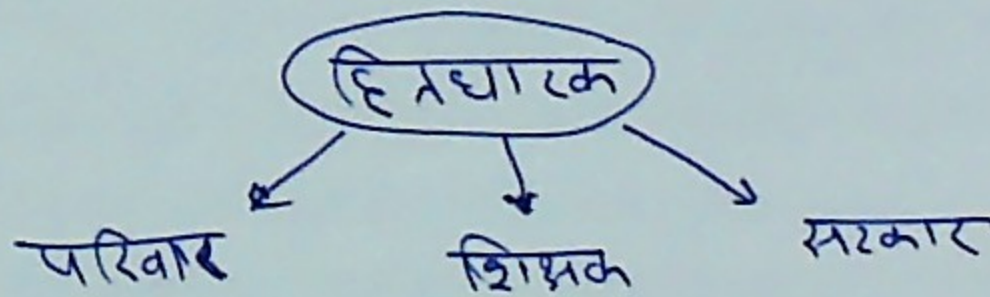 हितधारक
परिवार शिक्षक सरकार